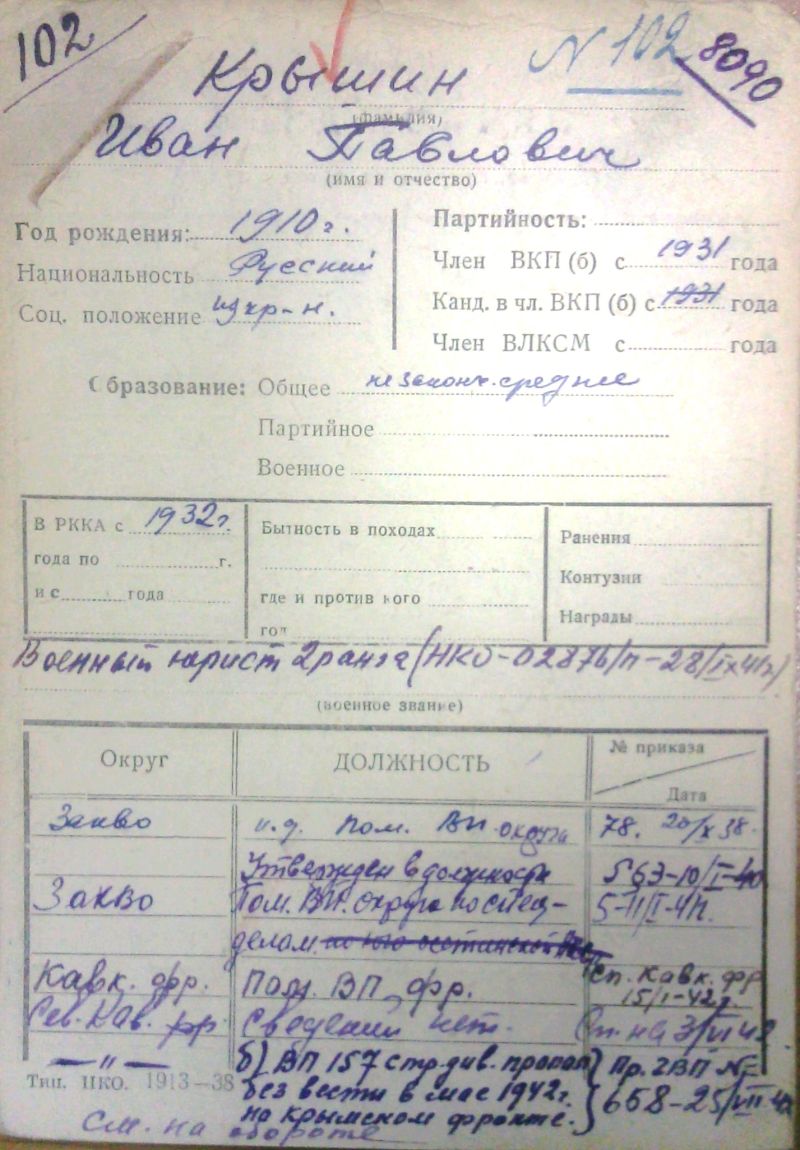 102
N 102
8090
Крышин
(фамилия)
Иван Павлович
(имя и отчество)
Год рождения: 1910 г.
Национальность Русский
Соц. положение из кр-н.
Партийность:
Член ВКП (б) с 1931 года
Канд. в чл. ВКП (б) с 1931 года
Член ВЛКСМ с года
Образование: Общее не законч. среднее
Партийное
Военное
В РККА с 1932 г.
года по г.
и с года
Бытность в походах
где и против кого
год
Ранения
Контузии
Награды
Военный юрист 2 ранга (НКО-02876/п-28/IX 41 г)
(военное звание)
Округ ДОЛЖНОСТЬ № приказа
Дата
Закво и.д. пом. ВП округа 78. 20/X 38.
Утвержден в должности 563-10/I-40
Закво Пом. ВП. округа по спец- 5-11/I-41.
делам
Кавк. фр. Пом. ВП фр. Сп. Кавк. фр
15/I-42 г.
Сев. Кав. фр Сведений нет. Сп. на 3/VI 42
— " — б) ВП 157 стр. див. пропал Пр. ГВП №
без вести в мае 1942 г. 658-25/VII-42
на крымском фронте.
Тип. НКО. 1913—38
См. на обороте